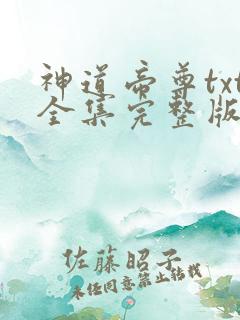 神道帝尊txt
全集完整版
佐藤昭子
未经同意禁止转载